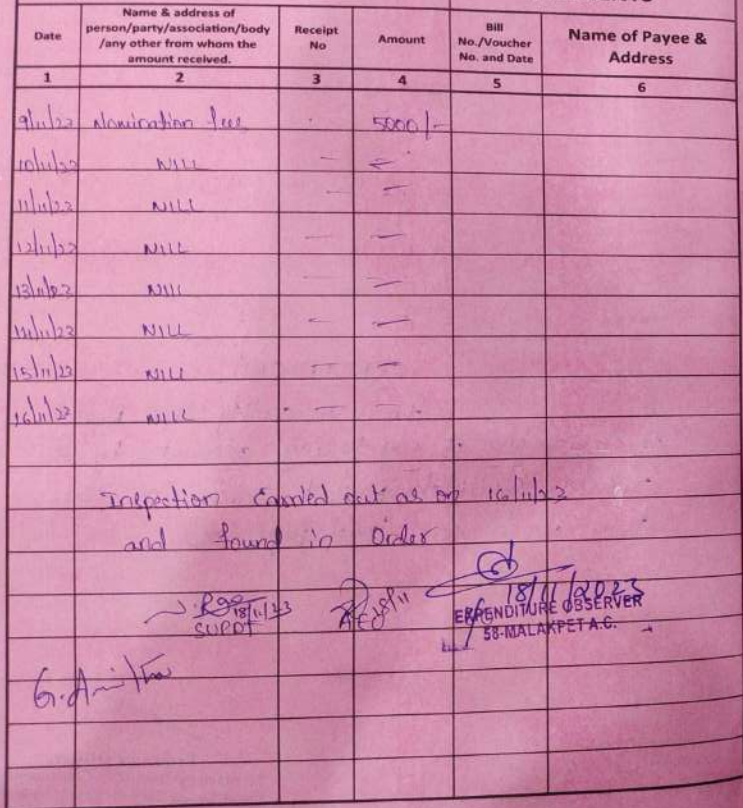 Date Name & address of person/party/association/body /any other from whom the amount received. Receipt No Amount Bill No./Voucher No. and Date Name of Payee & Address
1 2 3 4 5 6
9/11/23 Nomination fees 5000/-
10/11/23 NILL
11/11/23 NILL
12/11/23 NILL
13/11/23 NILL
14/11/23 NILL
15/11/23 NILL
16/11/23 NILL
Inspection Carried out as on 16/11/23
and found in Order
18/11/23 18/11 18/11/2023
SUPDT EXPENDITURE OBSERVER
58-MALAKPET A.C.